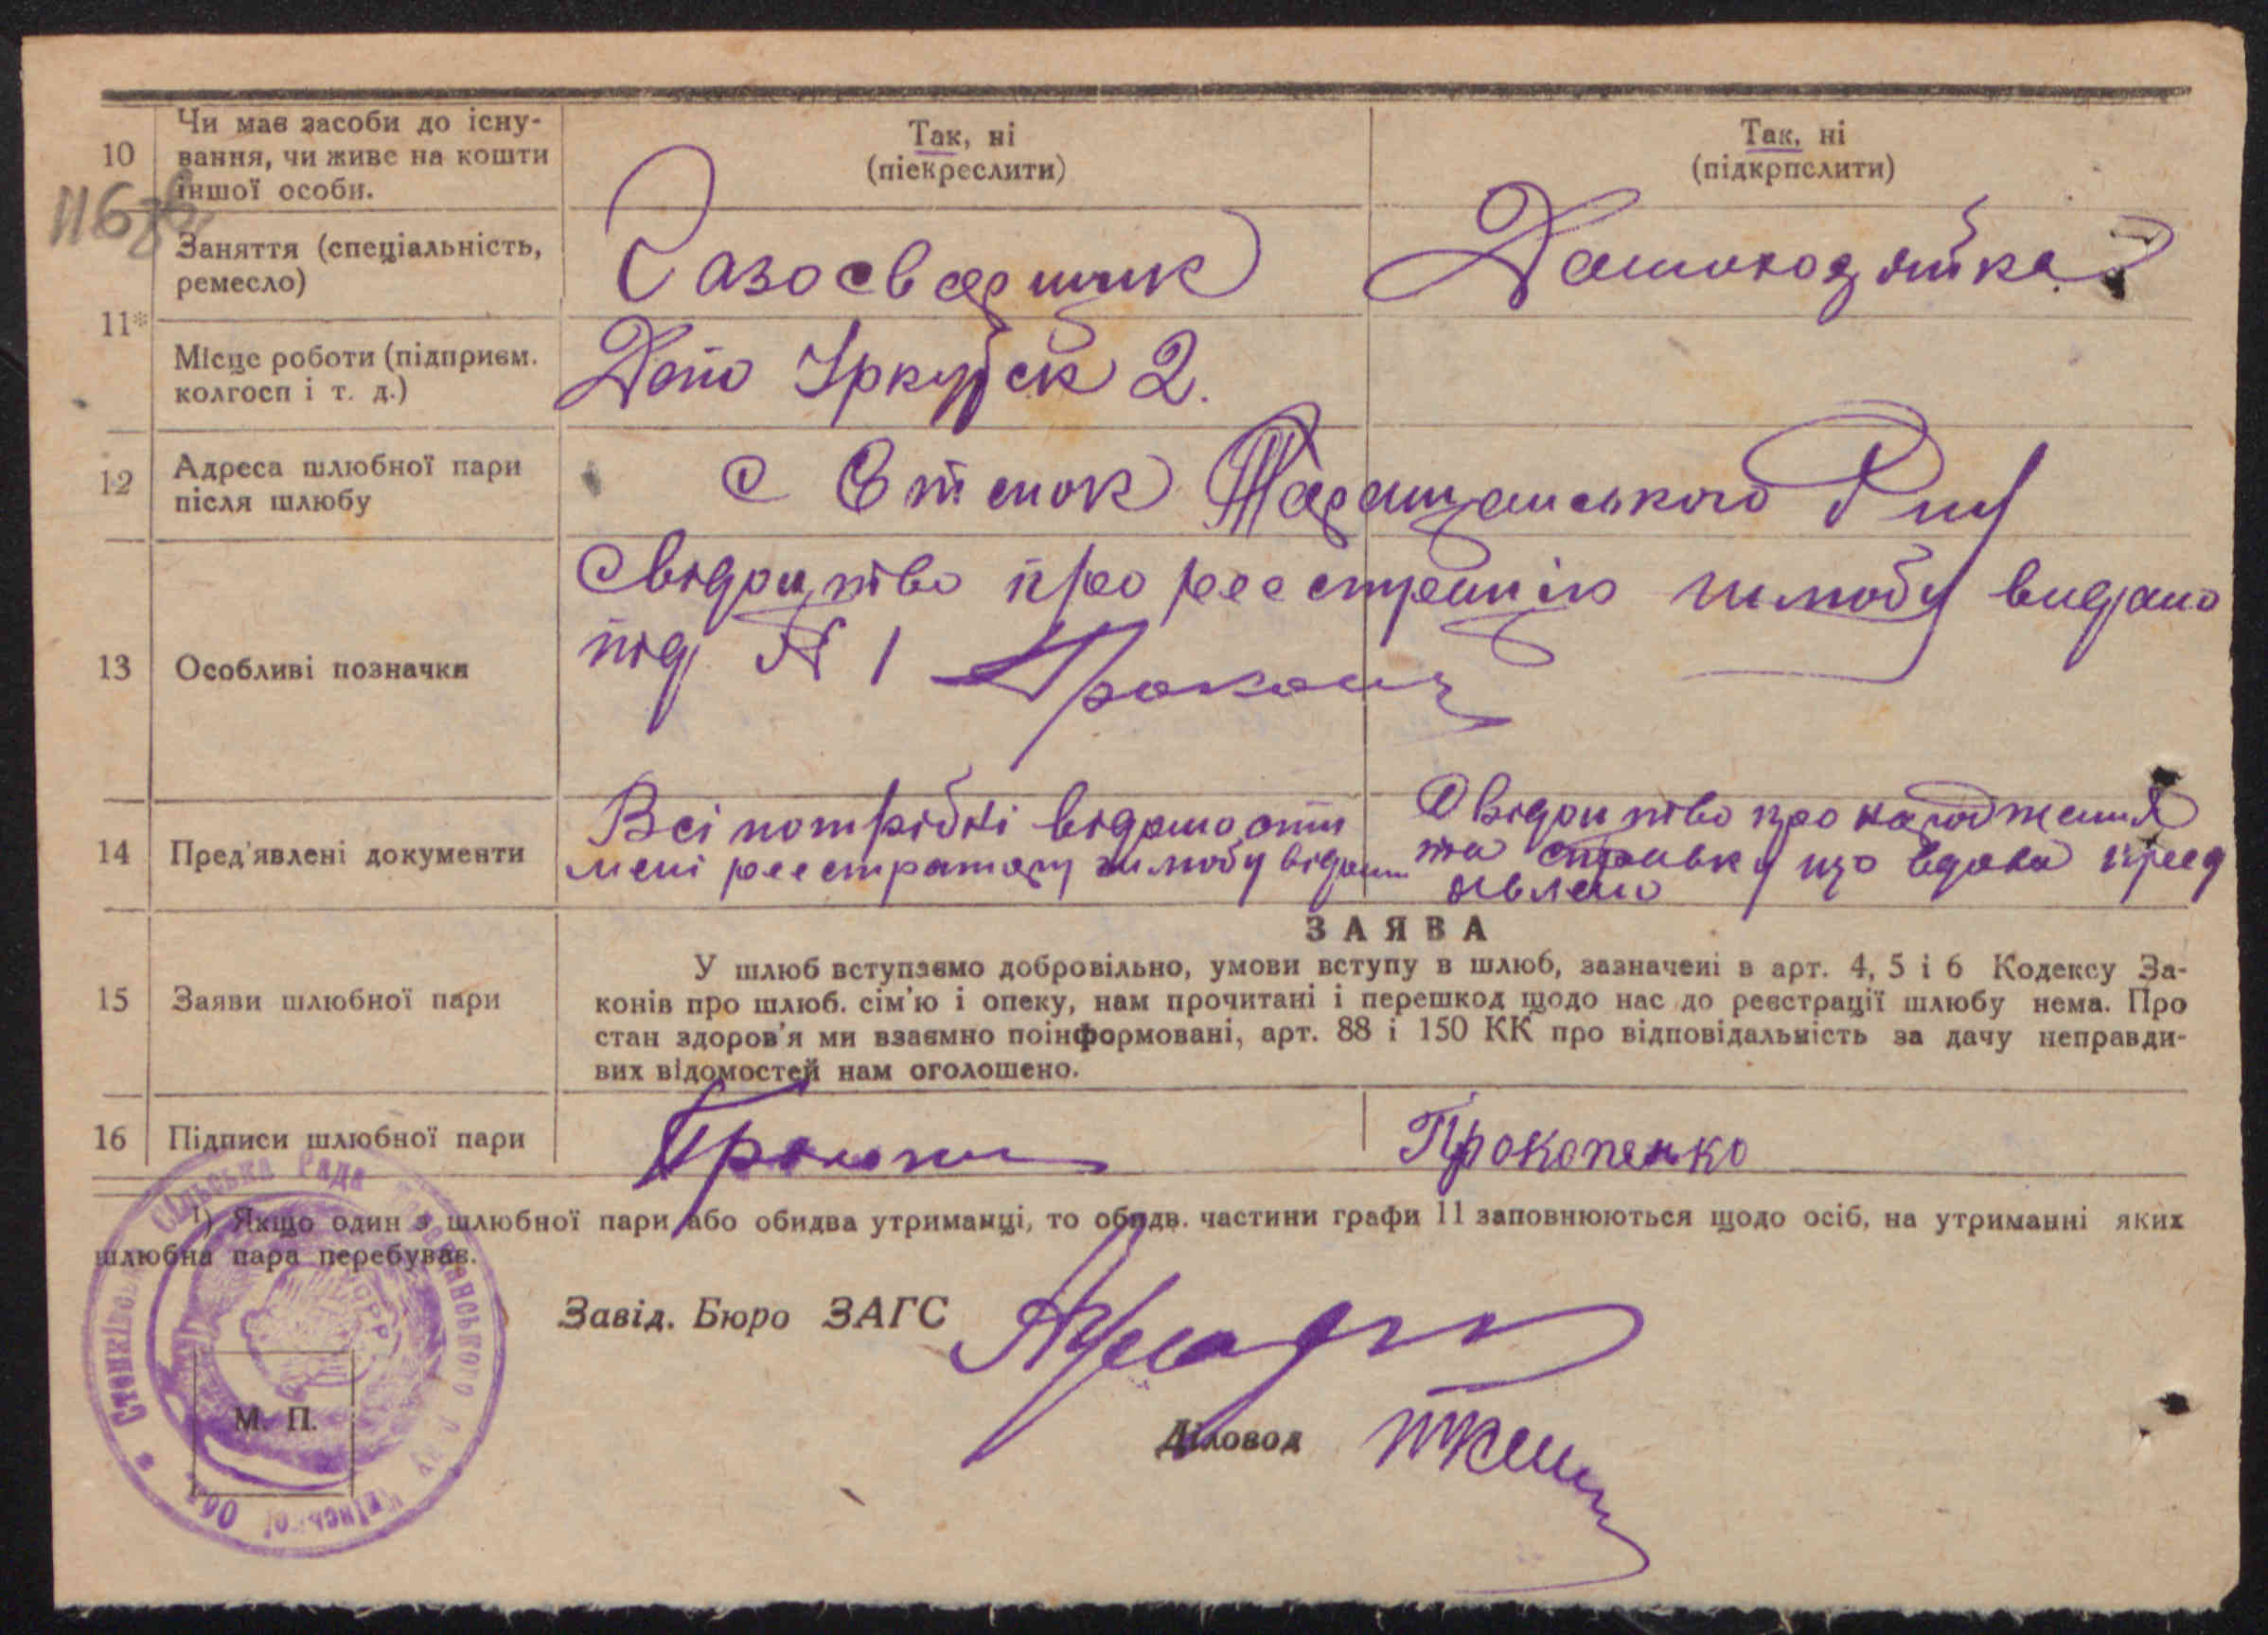 10
Чи має засоби до існу-
вання, чи живе на кошти
іншої особи.
Так, ні
(піекреслити)
Так, ні
(підкрпслити)
116зв
Заняття (спеціальність,
ремесло)
Газосварщик
Домохозяйка
11*
Місце роботи (підприєм.
колгосп і т. д.)
Депо Іркутск 2.
12
Адреса шлюбної пари
після шлюбу
с Станок Таращанського Р-ну
13
Особливі позначки
Свідоцтво про реєстрацію шлюбу видано
під № 1
14
Пред'явлені документи
Всі потрібні відомости
мені реєстратору шлюбу відомі
Свідоцтво про народження
та справку що вдова пред
явлено
15
Заяви шлюбної пари
ЗАЯВА
У шлюб вступаємо добровільно, умови вступу в шлюб, зазначені в арт. 4, 5 і 6 Кодексу За-
конів про шлюб. сім'ю і опеку, нам прочитані і перешкод щодо нас до реєстрації шлюбу нема. Про
стан здоров'я ми взаємно поінформовані, арт. 88 і 150 КК про відповідальність за дачу неправди-
вих відомостей нам оголошено.
16
Підписи шлюбної пари
Прокопенко
1) Якщо один з шлюбної пари або обидва утриманці, то обидв. частини графи 11 заповнюються щодо осіб, на утриманні яких
шлюбна пара перебуває.
Завід. Бюро ЗАГС
Діловод
М. П.
Сільська Рада Таращанського Київської Обл.